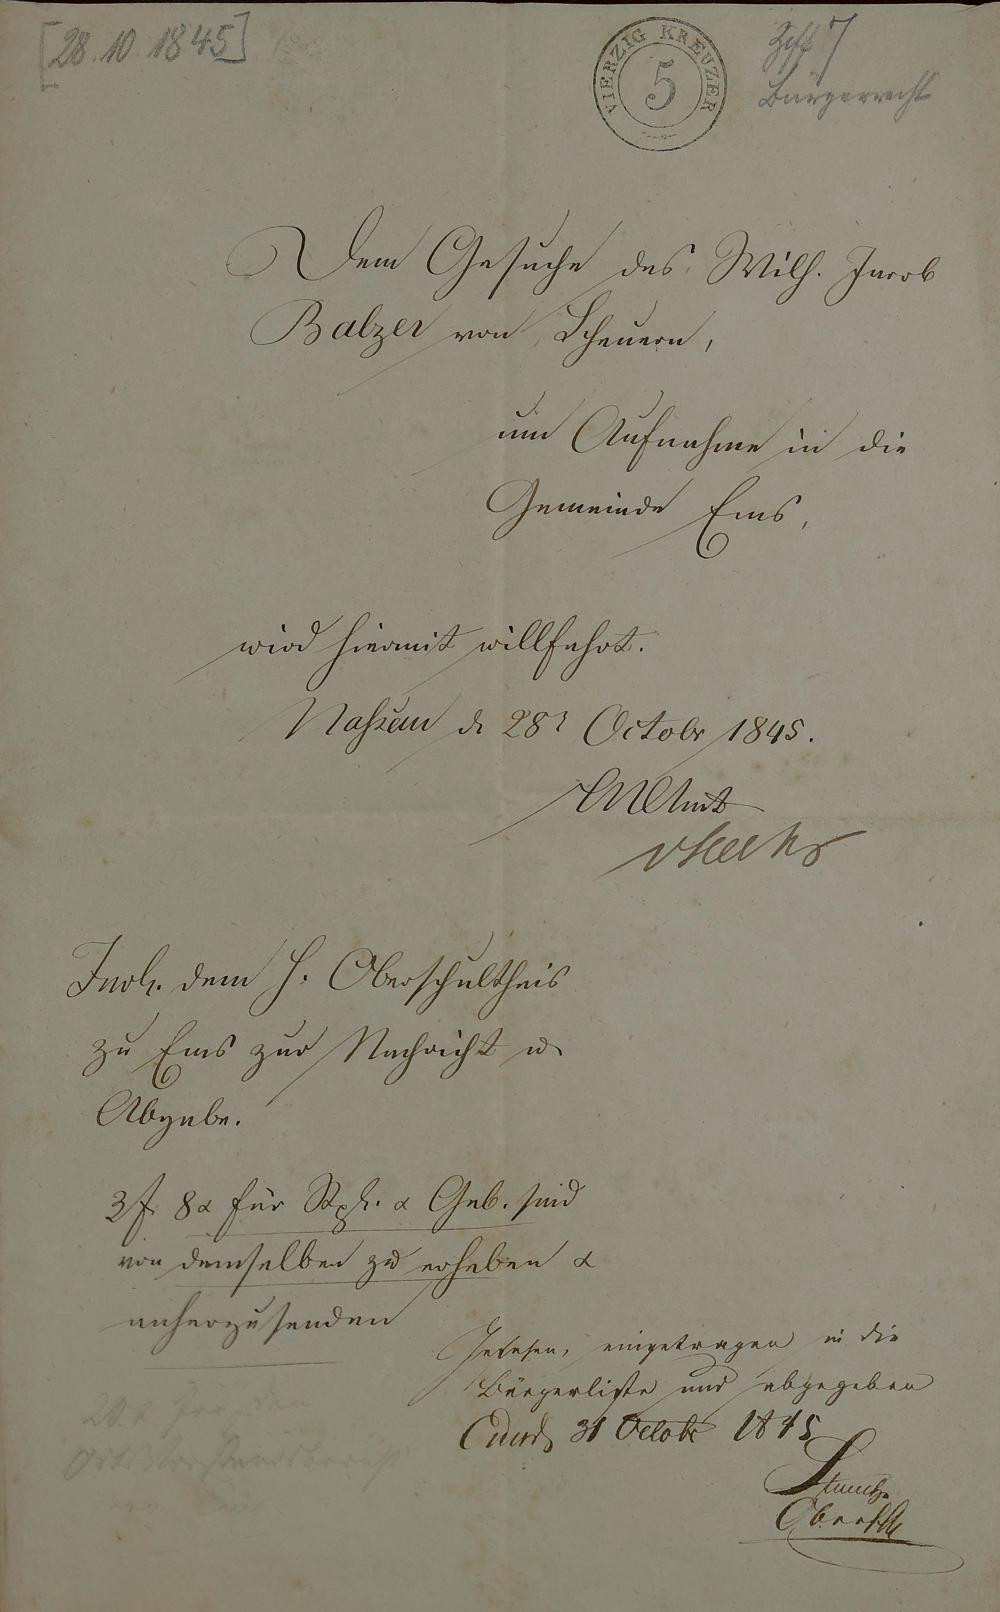 [28.10.1845]
VIERZIG KREUZER
5
Ziff 7
Bürgerrecht
Dem Gesuche des Wilh. Jacob
Balzer von Scheuern,
um Aufnahme in die
Gemeinde Ems,
wird hiermit willfahrt.
Nassau d. 28t Octobr 1845.
HN Amt
dem H. Oberschultheis
zu Ems zur Nachricht u.
Abgabe.
3f 8x für Stpl. & Geb. sind
von demselben zu erheben &
anherzusenden
Gelesen, eingetragen in die
Bürgerliste und abgegeben
Ems 31 Octobr 1845